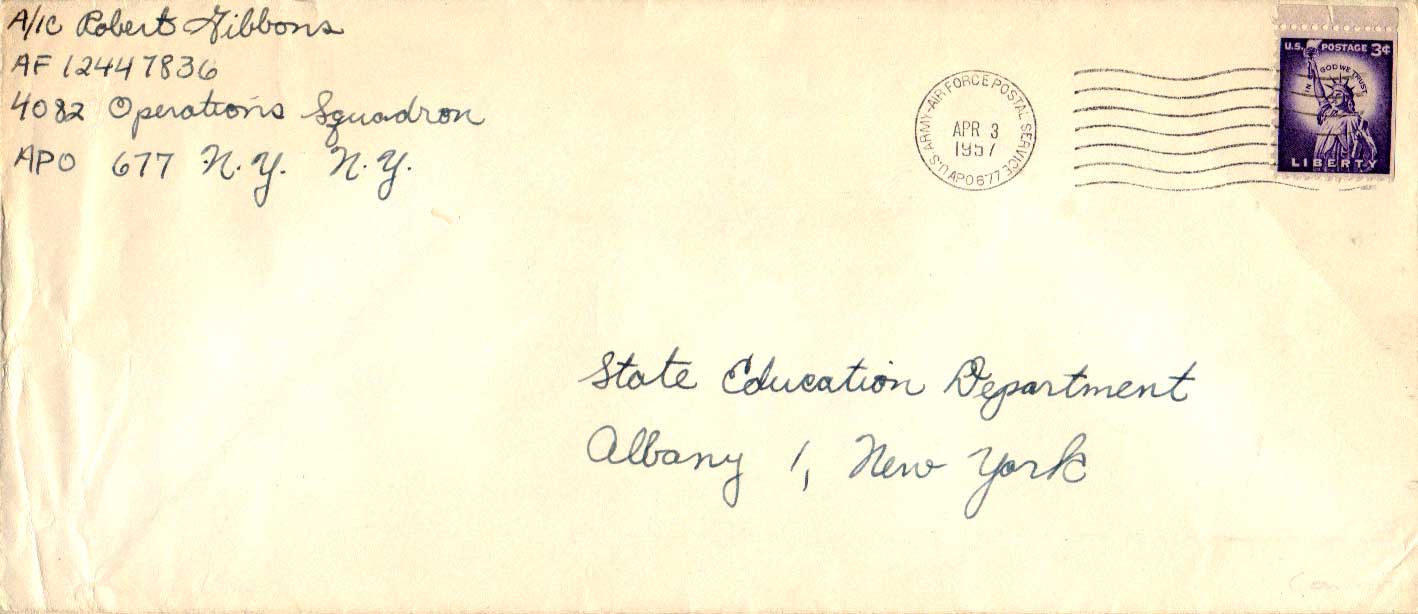 A/1C Robert Gibbons
AF 12447836
4082 Operations Squadron
APO 677 N.Y. N.Y.
U.S. ARMY-AIR FORCE POSTAL SERVICE
APR 3
1957
APO 677
U.S. POSTAGE 3¢
IN GOD WE TRUST
LIBERTY
State Education Department
Albany 1, New York